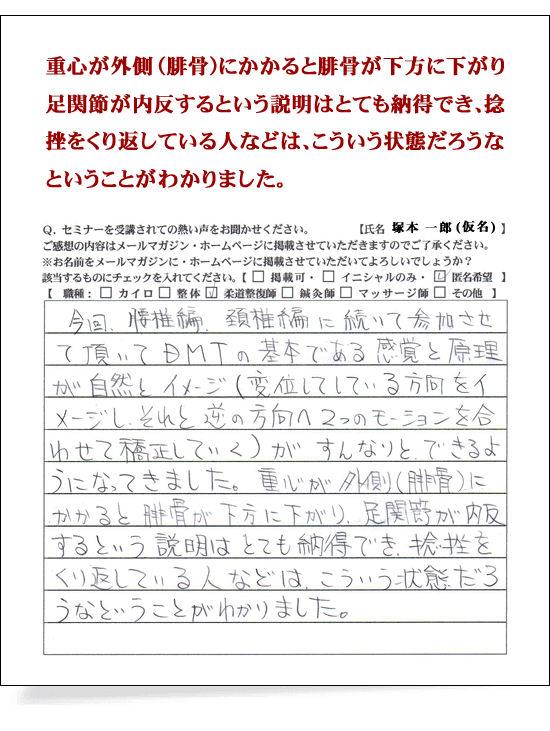 重心が外側（腓骨）にかかると腓骨が下方に下がり
足関節が内反するという説明はとても納得でき、捻
挫をくり返している人などは、こういう状態だろうな
ということがわかりました。
Q. セミナーを受講されての熱い声をお聞かせください。 【氏名 塚本 一郎(仮名) 】
ご感想の内容はメールマガジン・ホームページに掲載させていただきますのでご了承ください。
※お名前をメールマガジンに・ホームページに掲載させていただいてよろしいでしょうか？
該当するものにチェックを入れてください。【 □ 掲載可・ □ イニシャルのみ・ ☑ 匿名希望 】
【 職種： □ カイロ □ 整体 ☑ 柔道整復師 □ 鍼灸師 □ マッサージ師 □ その他 】
今回、腰椎編、頚椎編に続いて参加させ
て頂いてDMTの基本である感覚と原理
が自然とイメージ(変位してしている方向をイ
メージし、それと逆の方向へ2つのモーションを合
わせて矯正していく)がすんなりと、できるよ
うになってきました。重心が外側(腓骨)に
かかると腓骨が下方に下がり、足関節が内反
するという説明はとても納得でき、捻挫を
くり返している人などは、こういう状態だろ
うなということがわかりました。